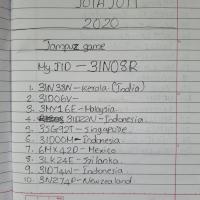 JOTA JOTI
2020
Jampuz game
My JID - 3IN08R
1. 3IN38N - Kerala (India)
2. 3ID06V -
3. 3MY16E - Malaysia
4. 3ID22N - Indonesia.
5. 3SG92T - Singapure
6. 3ID00M - Indonesia
7. 6MX42D - Mexico
8. 3LK24E - Srilanka
9. 3ID74W - Indonesia
10. 3NZ74P - Newzealand